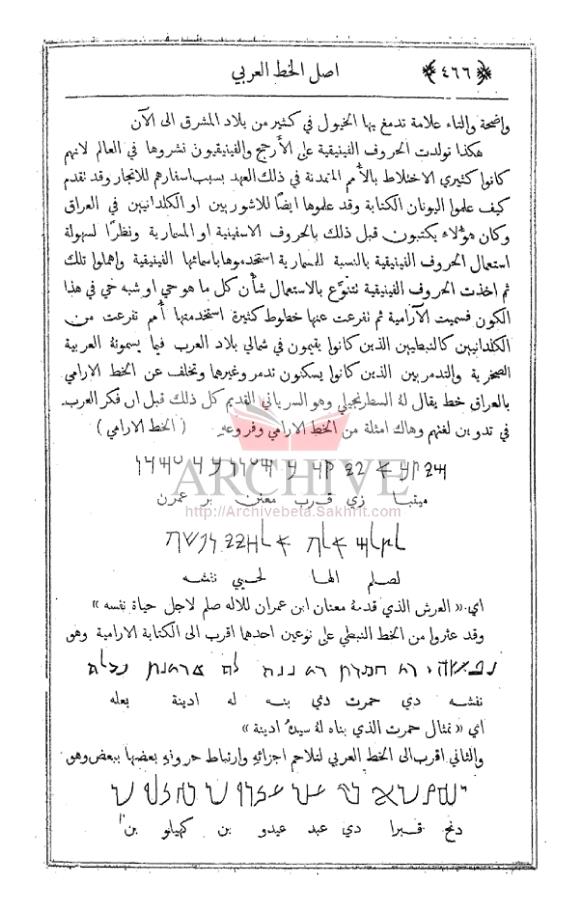 ﴿٤٦٦﴾ اصل الخط العربي
واضحة والتاء علامة تدمغ بها الخيول في كثير من بلاد المشرق الى الآن
هكذا تولدت الحروف الفينيقية على الأرجح والفينيقيون نشروها في العالم لانهم
كانوا كثيري الاختلاط بالأمم المتمدنة في ذلك العهد بسبب اسفارهم للاتجار وقد تقدم
كيف علموا اليونان الكتابة وقد علموها ايضًا للاشوريين او الكلدانيين في العراق
وكان هؤلاء يكتبون قبل ذلك بالحروف الاسفينية او المسمارية ونظرًا لسهولة
استعمال الحروف الفينيقية بالنسبة للمسمارية استخدموها باسمائها الفينيقية واهملوا تلك
ثم اخذت الحروف الفينيقية تتنوَّع بالاستعمال شأن كل ما هو حي او شبه حي في هذا
الكون فسميت الآرامية ثم تفرعت عنها خطوط كثيرة استخدمتها أمم تفرعت من
الكلدانيين كالنبطيين الذين كانوا يقيمون في شمالي بلاد العرب فيما يسمونهُ العربية
الصخرية والتدمريين الذين كانوا يسكنون تدمر وغيرها وتخلف عن الخط الارامي
بالعراق خط يقال لهُ السطرنجيلي وهو السرياني القديم كل ذلك قبل ان فكر العرب
في تدوين لغتهم وهاك امثلة من الخط الارامي وفروعهِ ( الخط الارامي )
ARCHIVE
http://Archivebeta.Sakhrit.com
ميتبا زي قرب معنن بر عمرن
لصلم الها لحيي نفشه
اي « العرش الذي قدمهُ معنان ابن عمران للاله صلم لاجل حياة نفسه »
وقد عثروا من الخط النبطي على نوعين احدها اقرب الى الكتابة الارامية وهو
نفشه دي حمرت دي بنه له ادينة بعله
اي « تمثال حمرت الذي بناه لهُ سيدُ ادينة »
والثاني اقرب الى الخط العربي لتلاحم اجزائهِ وارتباط حروفهِ بعضها ببعض وهو
دنح قبرا دي عبد عيدو بن كهيلو بن